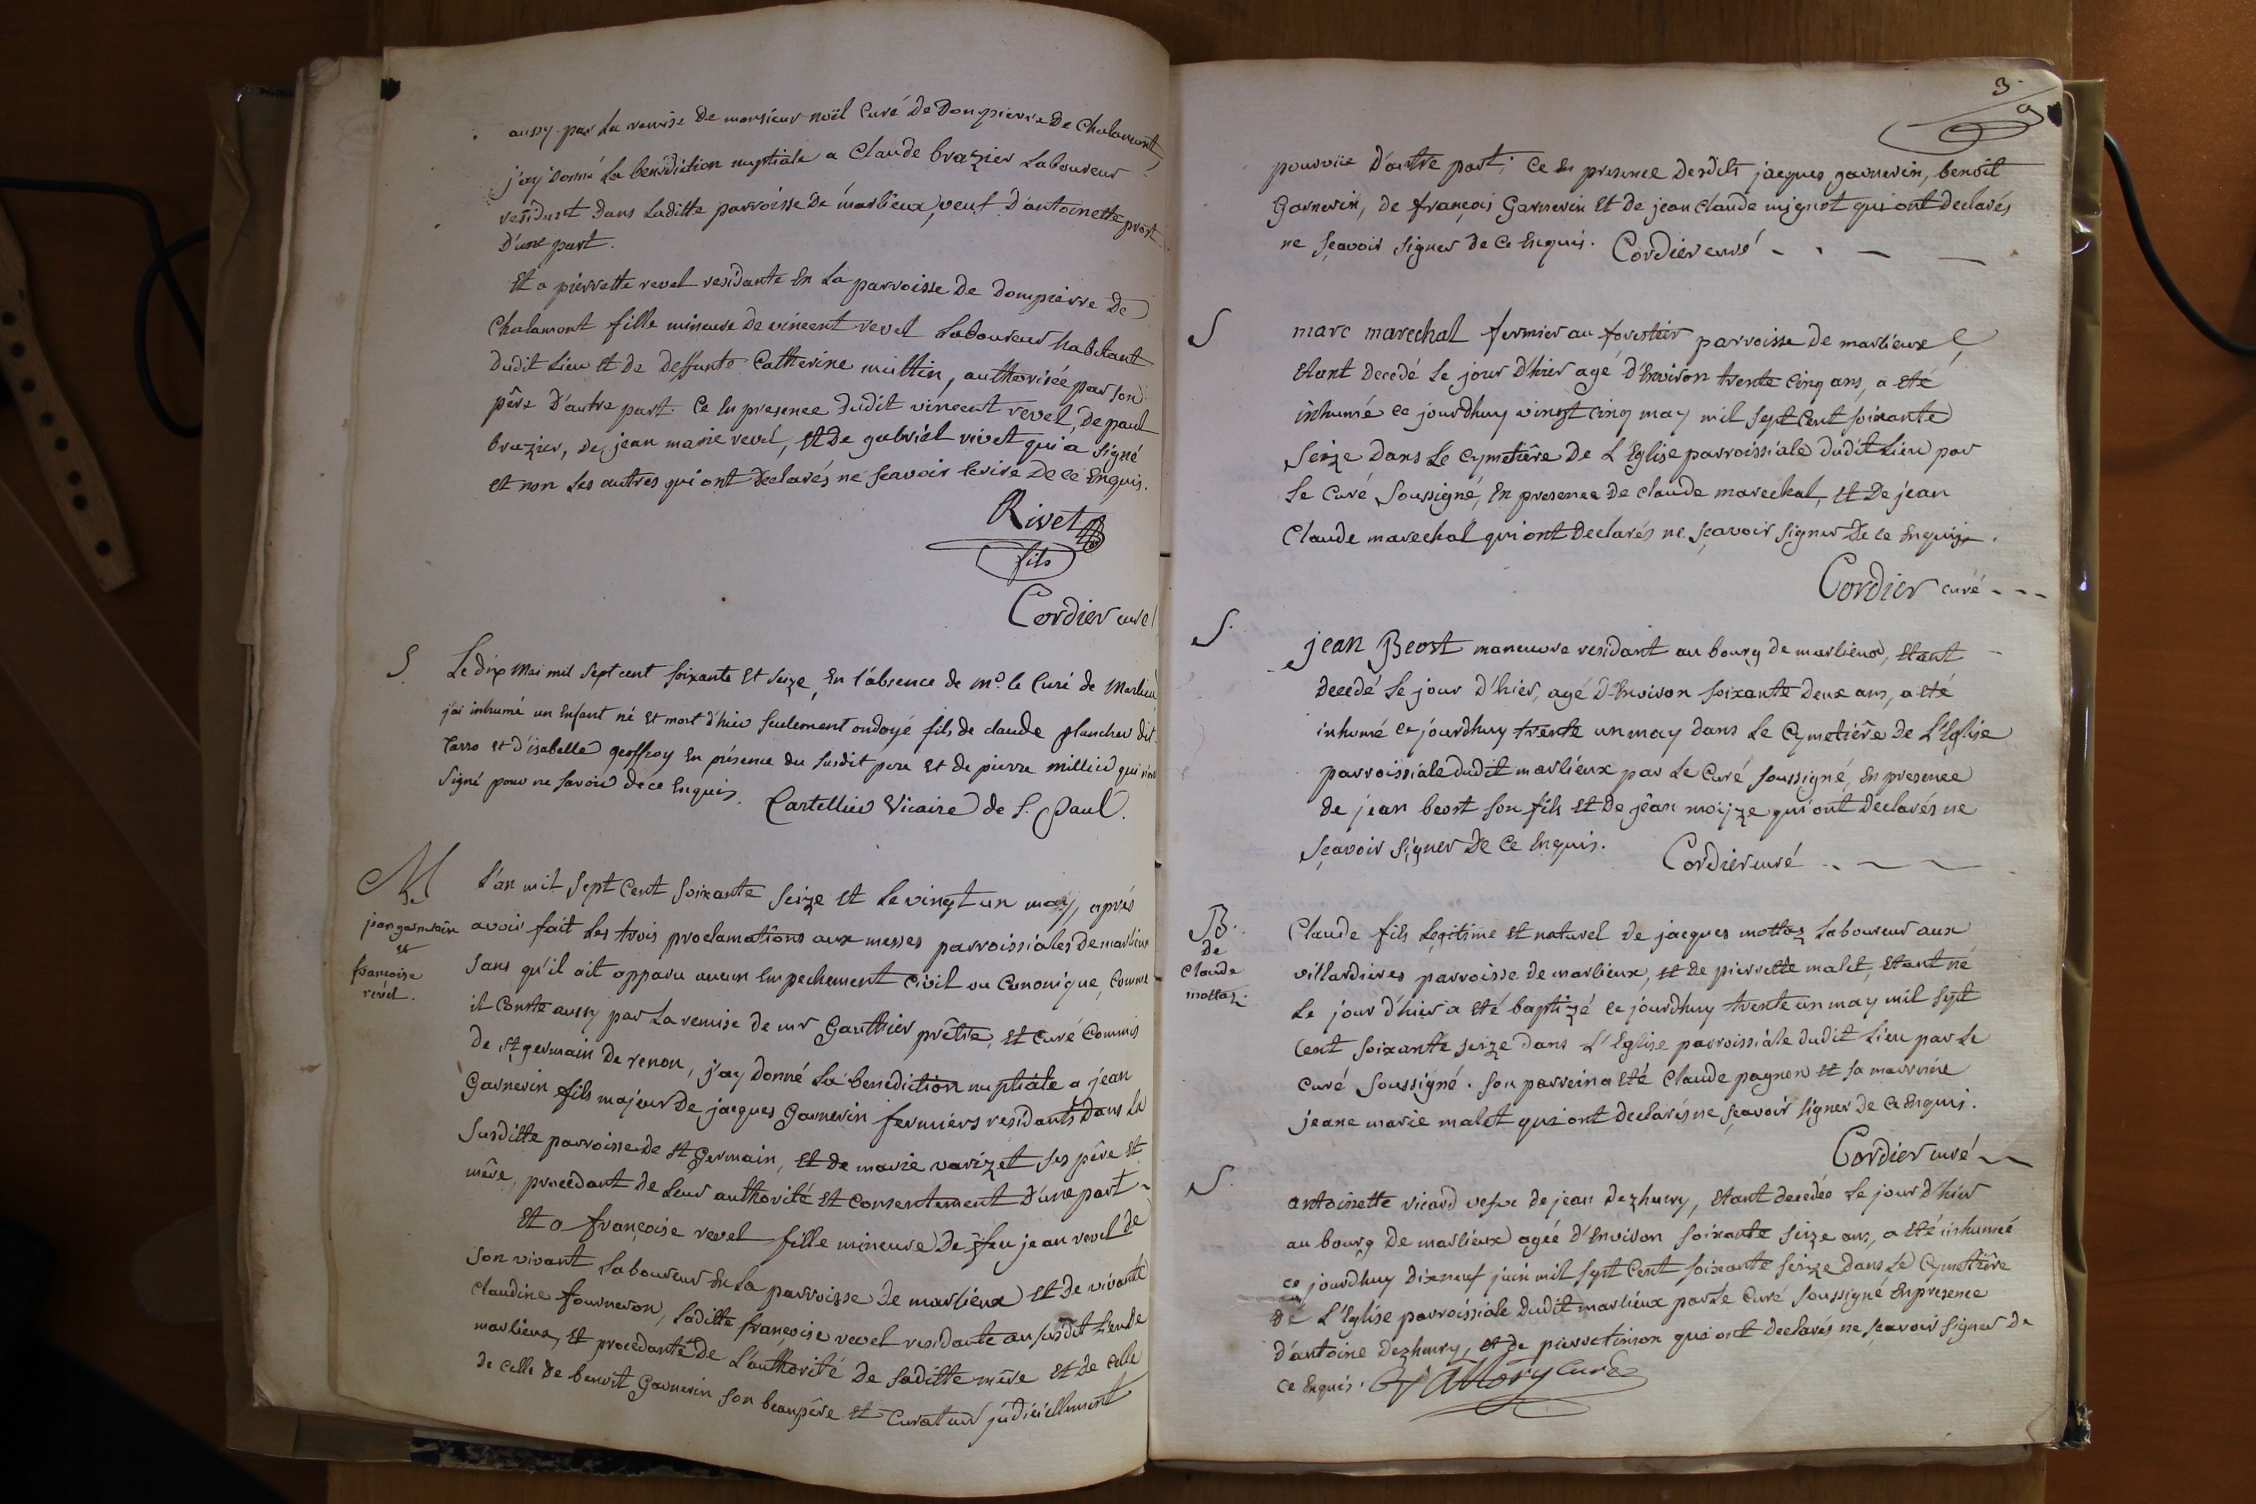 aussy par la remise de monsieur noël Curé de Dompierre de Chalamont,
j'ay donné la benediction nuptiale a Claude brazier Laboureur
residant dans laditte parroisse de marlieux, veuf d'antoinette prost
D'une part.
Et a pierrette revel residante En la parroisse de Dompierre de
Chalamont fille mineure de vincent revel laboureur habitant
dudit Lieu et de deffunte Catherine mittin, authorisée par son
père D'autre part. Ce En presence dudit vincent revel, de paul
brazier, de jean marie revel, Et de gabriel rivet qui a signé
et non les autres qui ont declarés ne scavoir Ecrire de ce Enquis.
Rivet
fils
Cordier curé
S. Le dix Mai mil Sept cent soixante Et Seize, En l'absence de Mr. le Curé de Marlieu
j'ai inhumé un Enfant né Et mort d'hier Seulement ondoyé fils de claude plancher dit
Carro Et d'isabelle geoffroy En présence du susdit pere Et de pierre millier qui n'ont
Signé pour ne savoir de ce Enquis. Cartellier Vicaire de S. Paul.
M
jean garnerin
et
francoise
revel.
L'an mil Sept Cent Soixante Seize Et le vingt un may, aprés
avoir fait les trois proclamations aux messes parroissiales de marlieux
sans qu'il ait apparu aucun Empechement Civil ou Canonique, Comme
il Conste aussy par la remise de mr Gauthier prêtre, et Curé Commis
de st germain de renon, j'ay donné la benediction nuptiale a jean
Garnerin fils majeur de jacques Garnerin fermiers residants dans la
Susditte parroisse de St Germain, Et de marie varizet ses père Et
mère, procedant de leur authorité Et Consentement D'une part -
Et a françoise revel fille mineure de feu jean revel de
son vivant laboureur En la parroisse de marlieux Et de vivante
Claudine fourneron, laditte françoise revel residante au susdit lieu de
marlieux, Et procedante de L'authorité de saditte mère Et de celle
de celle de benoit Garnerin son beaupère Et Curateur judiciellement
3
pourvüe D'autre part; Ce En presence desdits jacques garnerin, benoit
Garnerin, de françois Garnerin Et de jean claude mignot qui ont declarés
ne sçavoir signer de ce Enquis. Cordier curé
S marc marechal fermier au forestier parroisse de marlieux
Etant decedé le jour d'hier agé d'Environ trente cinq ans, a eté
inhumé ce jourdhuy vingt cinq may mil sept Cent soixante
seize dans le cymetière de L'Eglise parroissiale dudit Lieu par
le curé soussigné, En presence de claude marechal, Et de jean
Claude marechal qui ont declarés ne sçavoir signer de ce Enquis.
Cordier curé
S. jean Beost maneuvre residant au bourg de marlieux, Etant
decedé le jour d'hier, agé d'Environ soixante deux ans, a eté
inhumé ce jourdhuy trente un may dans le Cymetière de L'Eglise
parroissiale dudit marlieux par le Curé soussigné, En presence
de jean beost son fils Et de jean moyze qui ont declarés ne
sçavoir signer de ce Enquis.
Cordier curé
B.
de
Claude
mottaz.
Claude fils legitime Et naturel de jacques mottaz laboureur aux
villardières parroisse de marlieux, Et de pierrette malet, Etant né
le jour d'hier a eté baptizé ce jourdhuy trente un may mil sept
Cent soixante seize dans L'Eglise parroissiale dudit Lieu par le
curé soussigné. son parrein a eté Claude pagnon et sa marreine
jeane marie malet qui ont declarés ne sçavoir signer de ce Enquis.
Cordier curé
S. antoinette ricard vefve de jean dezhury, Etant decedée le jour d'hier
au bourg de marlieux agée d'Environ soixante seize ans, a eté inhumée
ce jourdhuy dixneuf juin mil sept Cent soixante seize dans le Cymetière
de L'Eglise parroissiale dudit marlieux par le Curé soussigné En presence
d'antoine dezhury, et de pierre tinion qui ont declarés ne sçavoir signer de
ce Enquis.